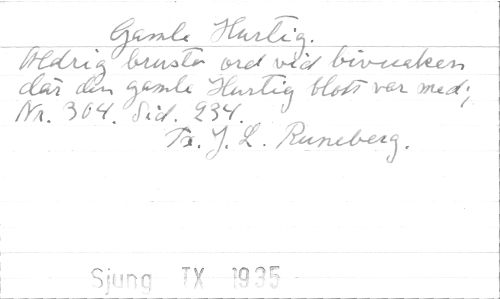 Gamle Hurtig.
Aldrig brusto ord vid bivuaken
där den gamle Hurtig blott var med;
Nr. 304. Sid. 234.
Tx. J. L. Runeberg.
Sjung IX 1935